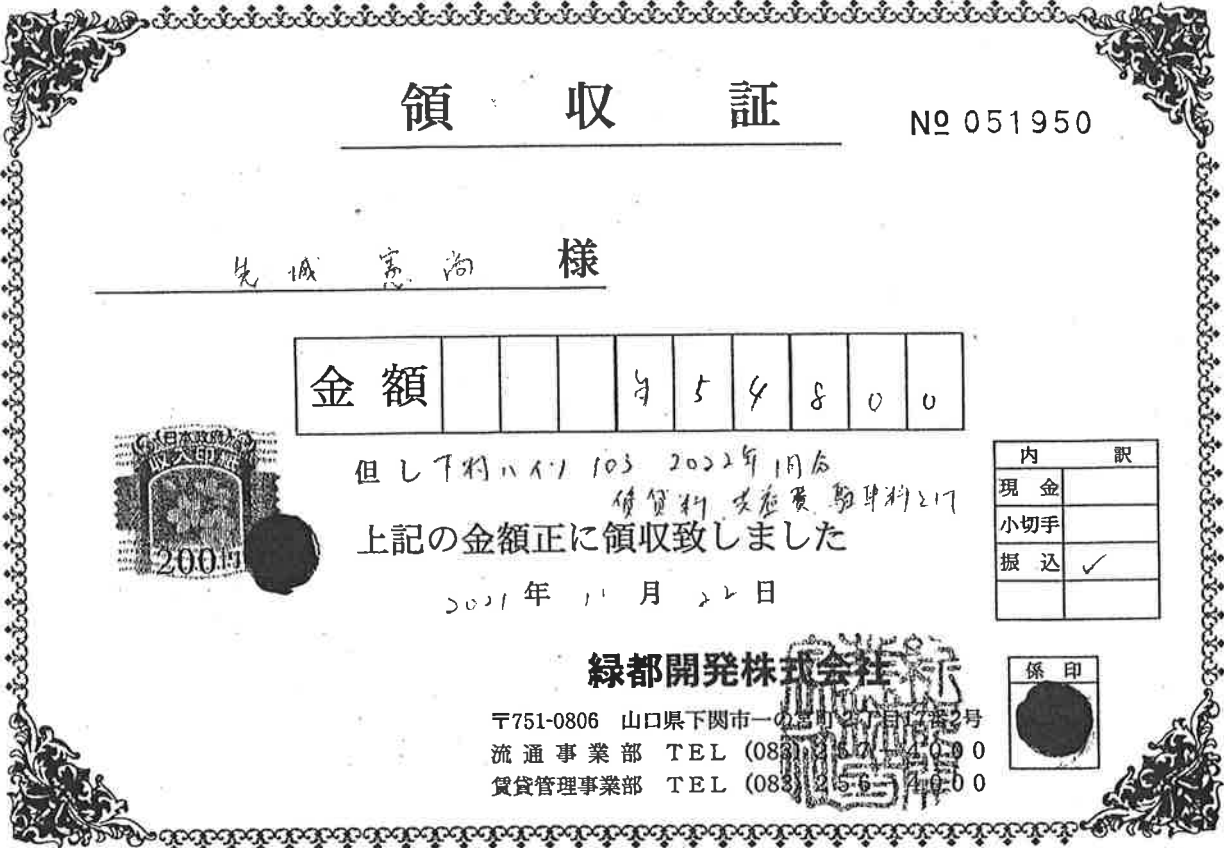 領収証
№ 051950
先城 憲尚 様
金額 ¥54800
日本政府
収入印紙
200円
但し 下村ハイツ 103 2022年1月分
賃貸料、共益費、駐車料として
上記の金額正に領収致しました
2021年 11月 22日
内訳
現金
小切手
振込 ✓
緑都開発株式会社
〒751-0806 山口県下関市一の宮町2丁目17番2号
流通事業部 TEL (083) 257-4000
賃貸管理事業部 TEL (083) 256-4000
係印